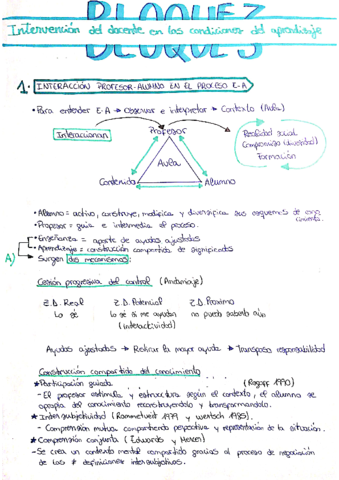 BLOQUE 3
Intervención del docente en las condiciones del aprendizaje
1. INTERACCIÓN PROFESOR-ALUMNO EN EL PROCESO E-A
• Para entender E-A → Observar e interpretar → Contexto (Aula)
Interaccionan
Profesor
Realidad social
Compromiso (diversidad)
Formación
Aula
Contenido
Alumno
• Alumno = activo, construye, modifica y diversifica sus esquemas de conocimiento.
• Profesor = guía e intermedia el proceso.
• Enseñanza = aporte de ayudas ajustadas
• Aprendizaje = construcción compartida de significados
A)
• Surgen dos mecanismos:
Cesión progresiva del control (Andamiaje)
Z.D. Real Z.D. Potencial Z.D. Próximo
Lo sé lo sé si me ayudan no puedo saberlo aún
(interactividad)
Ayudas ajustadas → Retirar la mayor ayuda → Traspaso responsabilidad
Construcción compartida del conocimiento
* Participación guiada (Rogoff 1990)
- El profesor estimula y estructura según el contexto, y el alumno se
apropia del conocimiento reconstruyendolo y transformandolo.
* Intersubjetividad (Rommetveit 1979 y Wertsch 1985).
- Comprensión mutua compartiendo perspectiva y representación de la situación.
* Comprensión conjunta (Edwards y Mercer)
- Se crea un contexto mental compartido gracias al proceso de negociación
de las ≠ definiciones intersubjetivas.